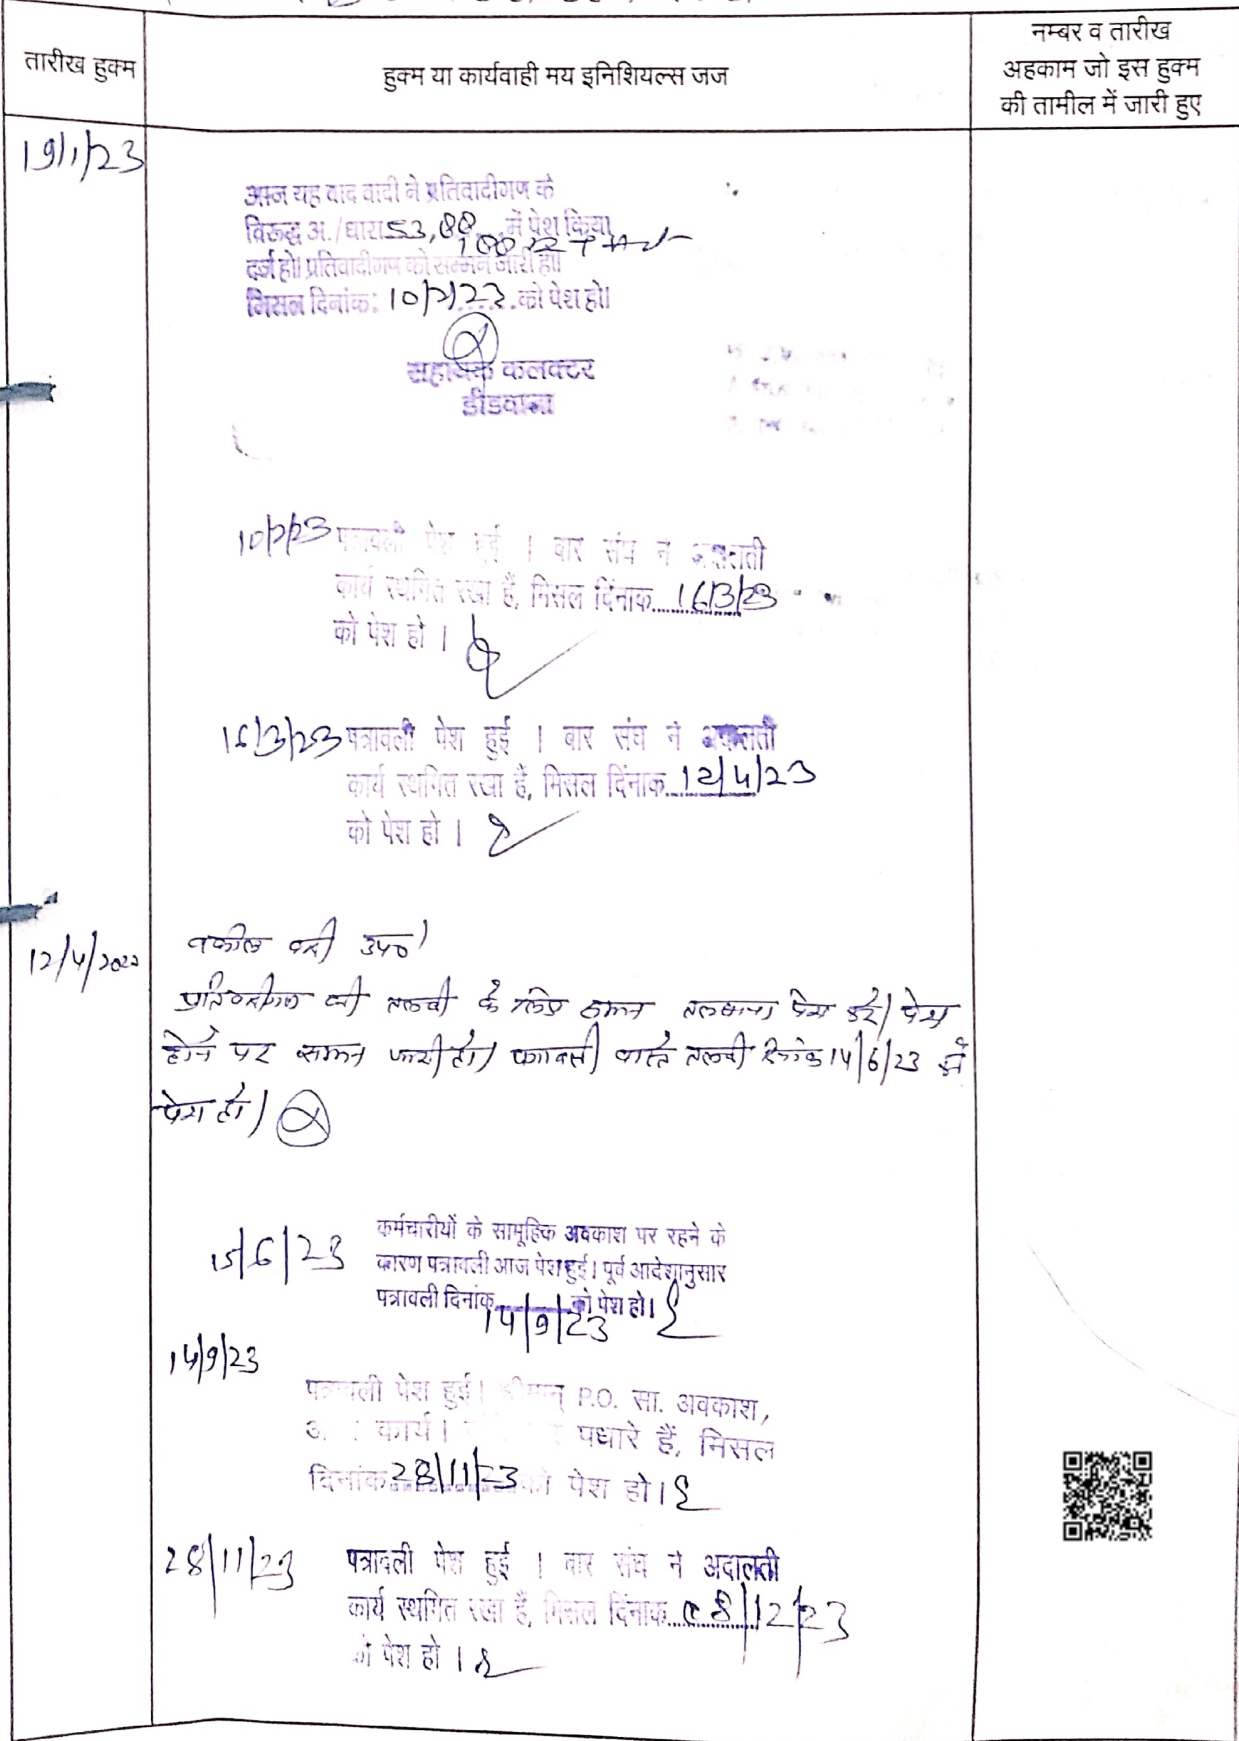 तारीख हुक्म
हुक्म या कार्यवाही मय इनिशियल्स जज
नम्बर व तारीख
अहकाम जो इस हुक्म
की तामील में जारी हुए
19/1/23
आज यह वाद वादी ने प्रतिवादीगण के
विरूद्ध अ./धारा 53, 88 में पेश किया
188
दर्ज हो। प्रतिवादीगण को सम्मन जारी हो।
मिसल दिनांक: 10/2/23 को पेश हो।
सहायक कलक्टर
डीडवाना
10/2/23 पत्रावली पेश हुई । बार संघ ने अदालती
कार्य स्थगित रखा हैं, मिसल दिंनाक 16/3/23
को पेश हो ।
16/3/23 पत्रावली पेश हुई । बार संघ ने अदालती
कार्य स्थगित रखा हैं, मिसल दिंनाक 12/4/23
को पेश हो ।
12/4/2022
वकील वादी उप०।
प्रतिवादीगण की तलबी के लिए सम्मन तलबाना पेश करे। पेश
होने पर सम्मन जारी हो। पत्रावली वास्ते तलबी दिनांक 14/6/23 को
पेश हो।
15/6/23 कर्मचारीयों के सामूहिक अवकाश पर रहने के
कारण पत्रावली आज पेश हुई। पूर्व आदेशानुसार
पत्रावली दिनांक 14/9/23 को पेश हो।
14/9/23
पत्रावली पेश हुई। श्रीमान् P.O. सा. अवकाश,
कार्य। पधारे हैं, मिसल
दिनांक 28/11/23 को पेश हो।
28/11/23 पत्रावली पेश हुई । बार संघ ने अदालती
कार्य स्थगित रखा हैं, मिसल दिंनाक 08/12/23
को पेश हो ।